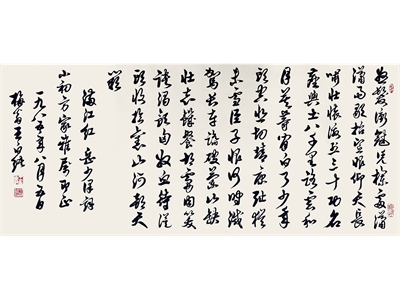 怒髮衝冠凭欄處瀟
瀟雨歇抬望眼仰天長
嘯壯懷激烈三十功名
塵與土八千里路雲和
月莫等閒白了少年
頭空悲切靖康恥猶
未雪臣子恨何時滅
駕長車踏破賀蘭山缺
壯志饑餐胡虜肉笑
談渴飲匈奴血待從
頭收拾舊山河朝天
闕
滿江紅 岳少保詞
小初方家雅屬即正
一九八五年八月五日